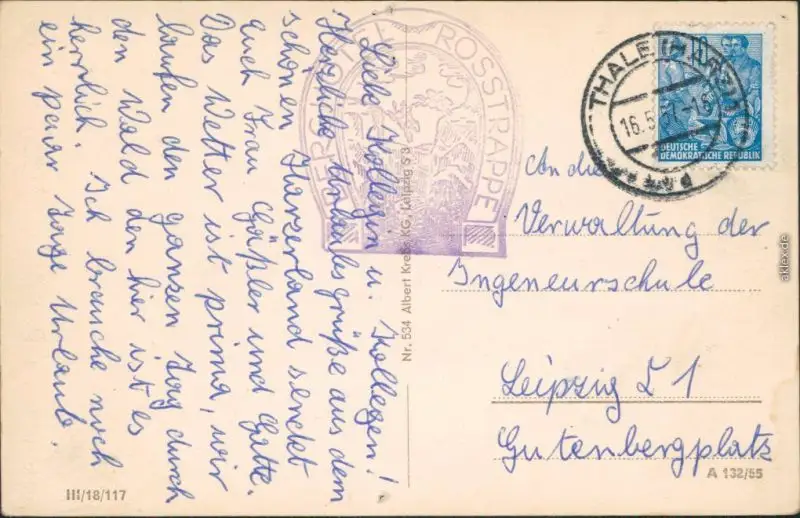 Liebe Kollegin u. Kollegen!
Herzliche Urlaubsgrüße aus dem
schönen Harzerland sendet
Euch Frau Gäßler und Gatte.
Das Wetter ist prima, wir
laufen den ganzen Tag durch
den Wald den hier ist es
herrlich. Ich brauche noch
ein paar Tage Urlaub.
ROSSTRAPPE
THALE (HARZ)
16.5.57-18
10
DEUTSCHE
DEMOKRATISCHE REPUBLIK
An die
Verwaltung der
Ingeneurschule
Leipzig C 1
Gutenbergplatz
Nr. 534 Albert Krebs KG, Leipzig S 3
III/18/117
A 132/55
aklex.de